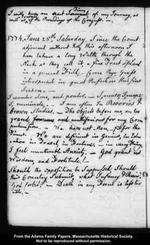 1774. June 25th. Saturday. Since the Court
adjourned without Day this afternoon I
have taken a long Walk, through the
Neck as they call it, a fine Tract of Land
in a general Field. — Corn, Rye, Grass
interspersed in great Perfection this fine
Season.
I wander alone, and ponder. — I muse, I mope,
I ruminate. — I am often in Reveries &
Brown Studies. — The Objects before me, are too
grand, and multifarious for my Com
prehension. — We have not Men, fit for the
Times. We are deficient in Genius, in Edu
cation, in Travel, in Fortune — in every Thing.
I feel unutterable Anxiety. — God grant us
Wisdom, and Fortitude!
Should the Opposition be suppressed, should
this Country submit, what Infamy and Ruin!
God forbid. Death in any Form is less
From the Adams Family Papers, Massachusetts Historical Society.
Not to be reproduced without permission.